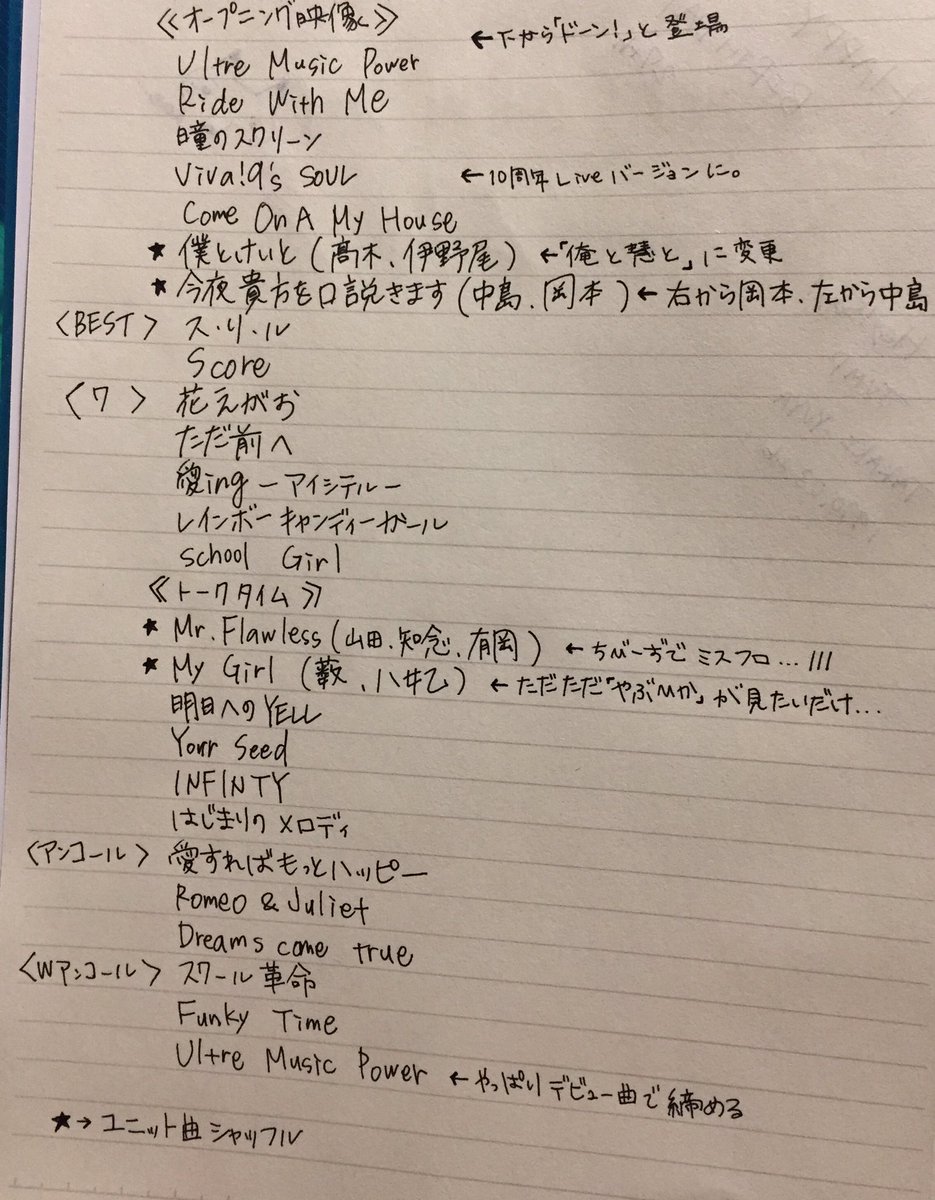 《オープニング映像》 ←下から「ドーン!」と登場
Ultre Music Power
Ride With Me
瞳のスクリーン
Viva!9's SOUL ←10周年Liveバージョンに。
Come On A My House
★ 僕とけいと(髙木、伊野尾) ←「俺と慧と」に変更
★ 今夜貴方を口説きます(中島、岡本) ← 右から岡本、左から中島
〈BEST〉 ス・リ・ル
Score
〈7〉 花えがお
ただ前へ
愛ing ーアイシテルー
レインボーキャンディーガール
School Girl
《トークタイム》
★ Mr.Flawless(山田、知念、有岡) ←ちびーずでミスフロ...!!!
★ My Girl (薮、八乙女) ←ただただ「やぶひか」が見たいだけ...
明日へのYELL
Your Seed
INFINTY
はじまりのメロディ
〈アンコール〉 愛すればもっとハッピー
Romeo & Juliet
Dreams come true
〈Wアンコール〉 スクール革命
Funky Time
Ultre Music Power ←やっぱりデビュー曲で締める
★→ユニット曲シャッフル